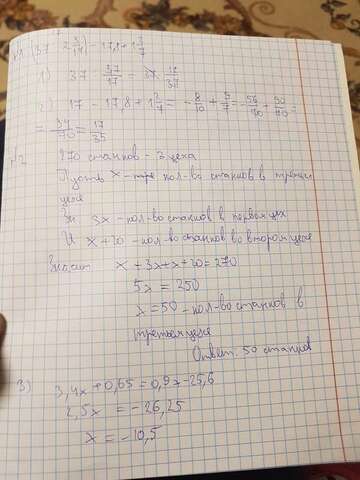 (37 : 2 3/17) - 17,8 + 1 2/7
1) 37 : 37/17 = 37 · 17/37
2) 17 - 17,8 + 1 2/7 = - 8/10 + 9/7 = - 56/70 + 90/70 =
= 34/70 = 17/35
№2
270 станков - 3 цеха
Пусть x - кол-во станков в третьем
цехе
3x - кол-во станков в первом цех
И x + 20 - кол-во станков во втором цехе
x + 3x + x + 20 = 270
5x = 250
x = 50 - кол-во станков в
третьем цехе
Ответ. 50 станков
3) 3,4x + 0,65 = 0,9x - 25,6
2,5x = -26,25
x = -10,5